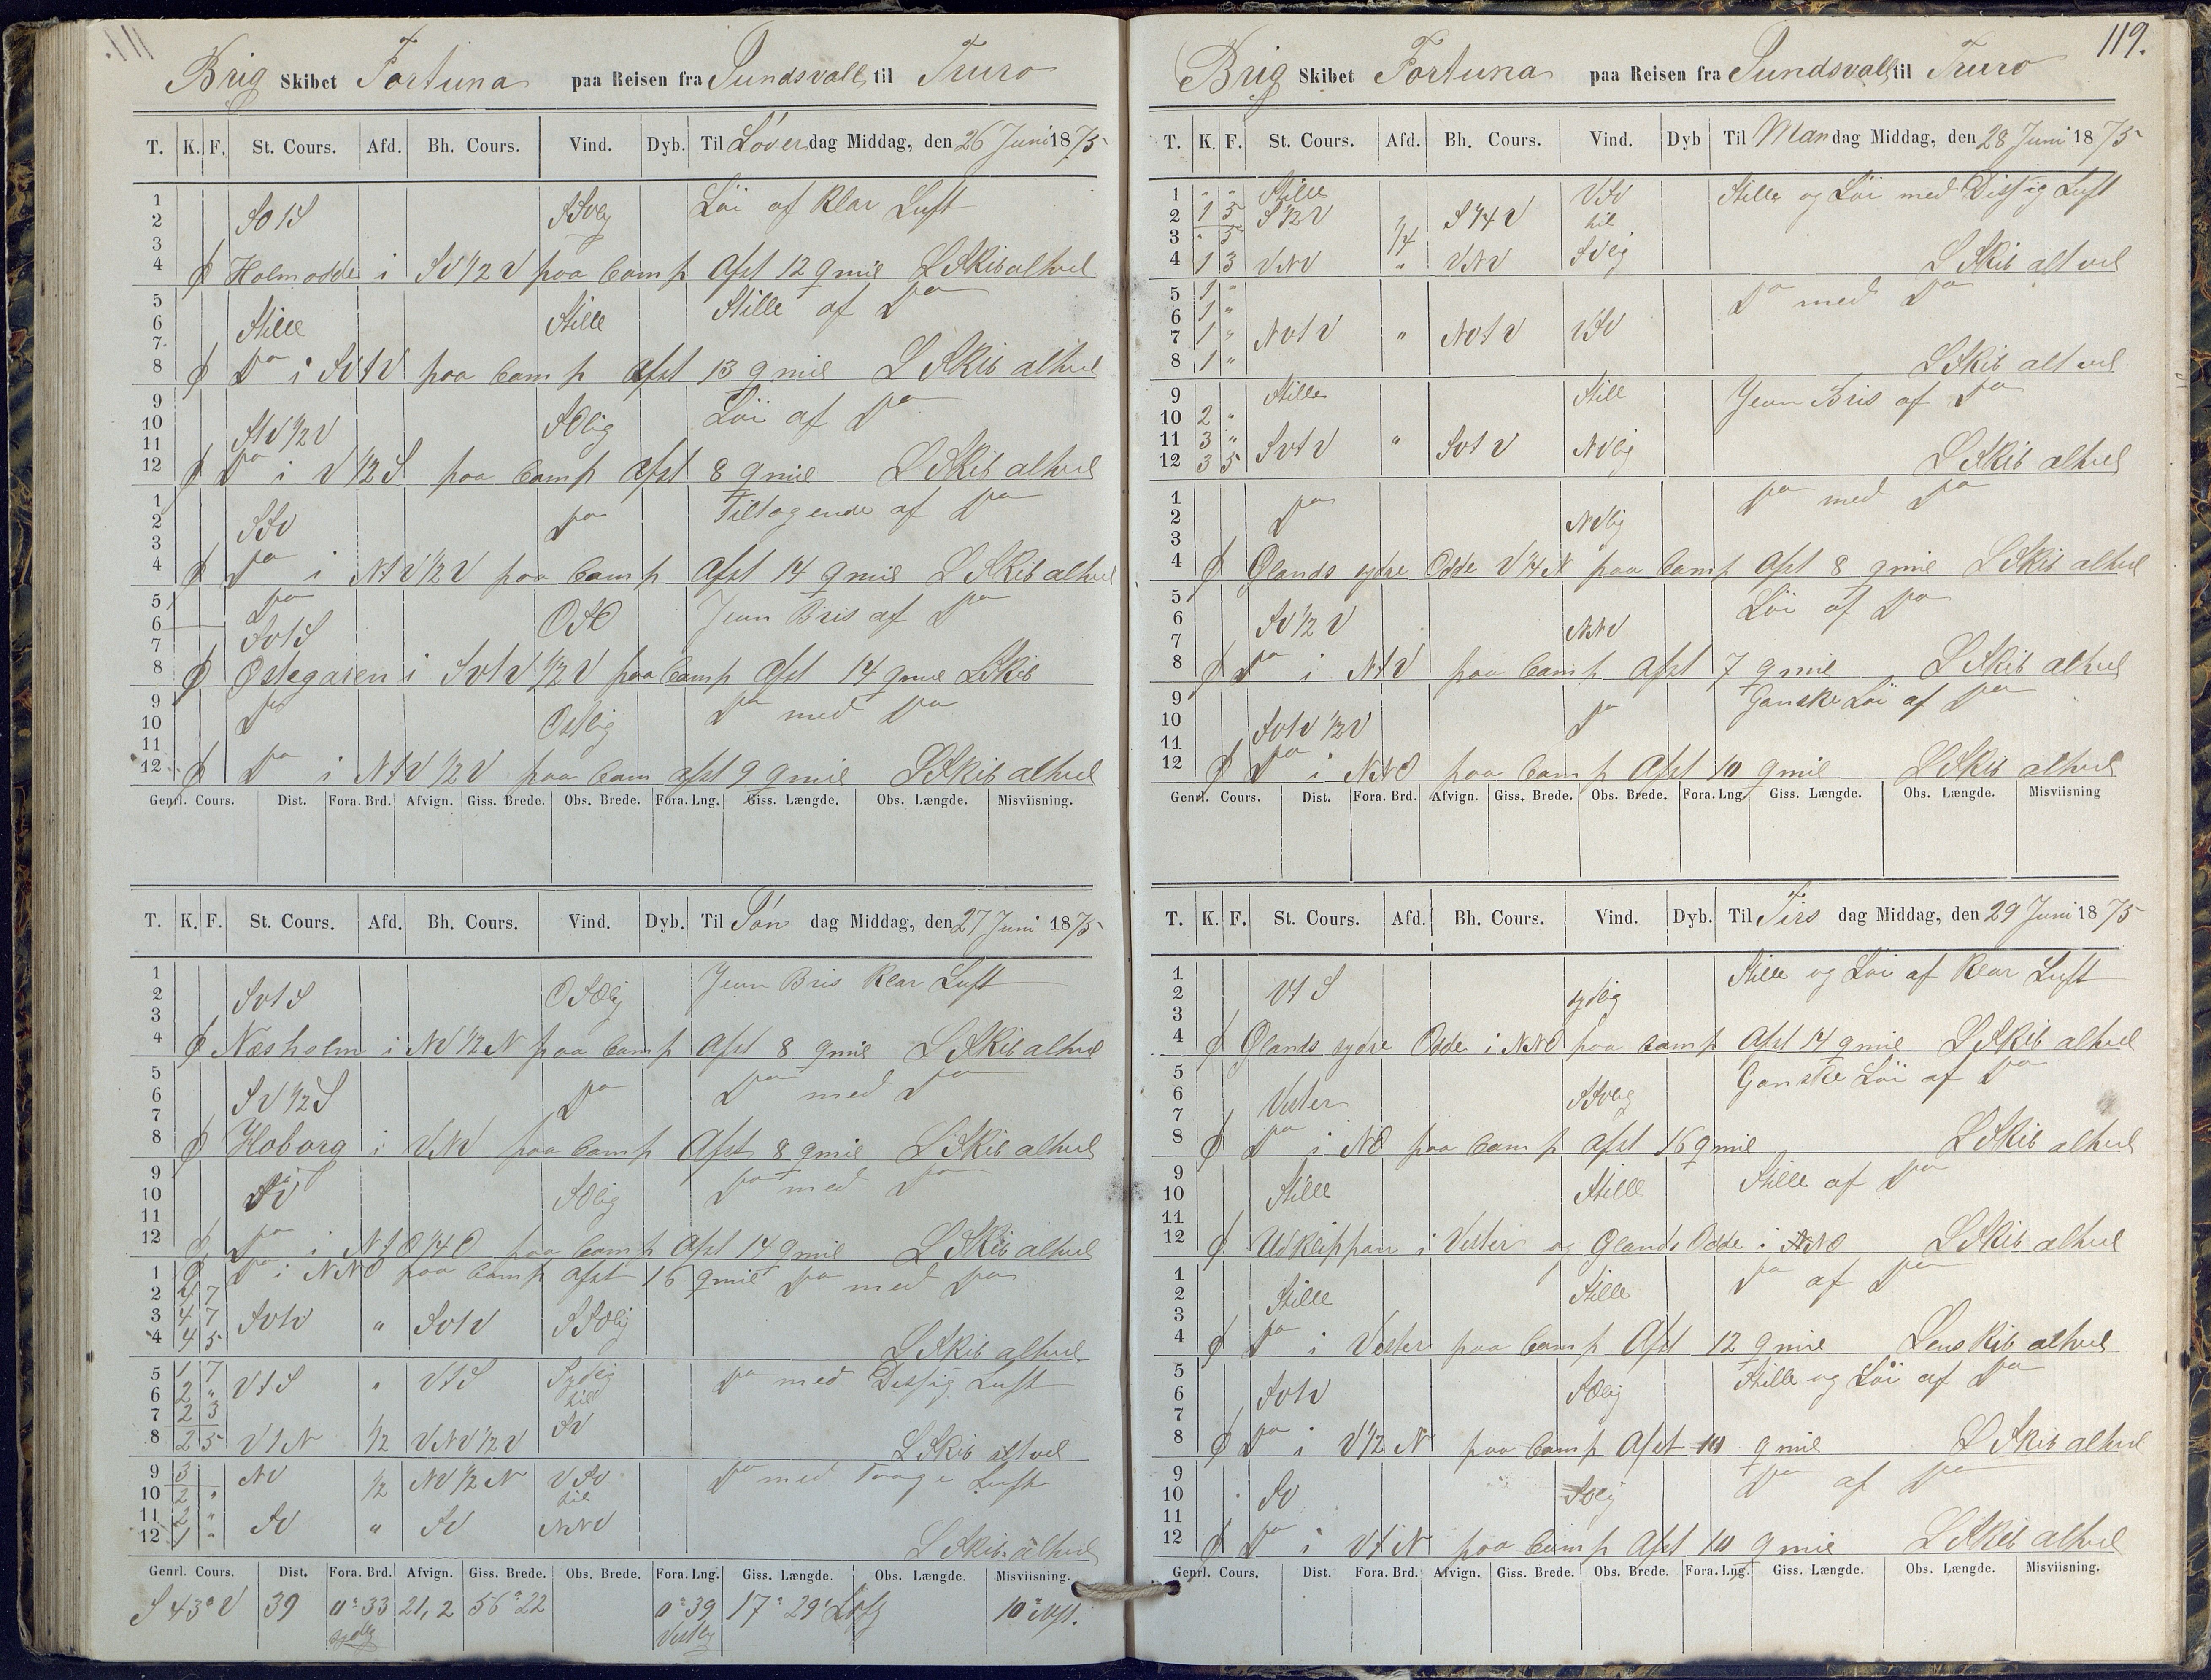 Brig Skibet Fortuna paa Reisen fra Sundsvall til Truro
T. K. F. St. Cours. Afd. Bh. Cours. Vind. Dyb. Til Löverdag Middag, den 26 Juni 1875
1
2 SO t S SSvlig Löi af Klar Luft
3
4 ₵ Holmodde i SV 1/2 V paa Comp Afst 12 q mil L Skib alt vel
5
6 Stille Stille Stille af Do
7
8 ₵ Do i SV t V paa Comp Afst 13 q mil L Skib alt vel
9
10 StV 1/2 V SOlig Löi af Do
11
12 ₵ Do i V 1/2 S paa Comp Afst 8 q mil L Skib alt vel
1
2 SSv Do Tiltagende af Do
3
4 ₵ Do i NtV 1/2 V paa Comp Afst 14 q mil L Skib alt vel
5 Do
6 OSO Jevn Bris af Do
7 Sv t S
8 ₵ Östegaren i Sv t V 1/2 V paa Comp Afst 14 q mil L Skib
9 Do
10 Ostlig Do med Do
11
12 ₵ Do i NtV 1/2 V paa Com afst 9 q mil L Skib alt vel
Genrl. Cours. Dist. Fora. Brd. Afvign. Giss. Brede. Obs. Brede. Fora. Lng. Giss. Længde. Obs. Længde. Misviisning.
T. K. F. St. Cours. Afd. Bh. Cours. Vind. Dyb. Til Sön dag Middag, den 27 Juni 1875
1
2 Sv t S OSOlig Jevn Bris Klar Luft
3
4 ₵ Næsholm i NV 1/2 N paa Comp Afst 8 q mil L Skib alt vel
5
6 SV 1/2 S Do Do med Do
7
8 ₵ Hoborg i VNV paa Comp Afst 8 q mil L Skib alt vel
9
10 SV SOlig Do med Do
11
12 ₵ Do i NtO 1/4 O paa Comp Afst 14 q mil L Skib alt vel
1 ₵ Do i NNO paa Comp afst 16 q mil Do med Do
2 4 7
3 4 7 Sv t V " Sv t V SSOlig
4 4 5 L Skib alt vel
5 1 7 V t S " V t S Sydlig Do med Dessig Luft
6 2 " til
7 2 3
8 2 5 V t N 1/2 VNV 1/2 V SV L Skib alt vel
9 3 NV 1/2 NV 1/2 N VSv Do med Taage Luft
10 2 " til
11 2 " SV " SV NNV
12 1 " L Skib alt vel
Genrl. Cours. Dist. Fora. Brd. Afvign. Giss. Brede. Obs. Brede. Fora. Lng. Giss. Længde. Obs. Længde. Misviisning.
S 43° V 39 0° 33 21,2 56° 22 0° 39 17° 29' 10° Vst.
sydlig Vestlig
119.
Brig Skibet Fortuna paa Reisen fra Sundsvall til Truro
T. K. F. St. Cours. Afd. Bh. Cours. Vind. Dyb Til Mandag Middag, den 28 Juni 1875
1 " " Stille VSv Stille og Löi med Dissig Luft
2 1 5 S 1/2 V S 1/4 V til
3 " 5 1/4
4 1 3 VNV " VNV SVlig L Skib alt vel
5 1 " Do med Do
6 1 "
7 1 " NV t V " NV t V VSv
8 1 " L Skib alt vel
9 Stille Still Jevn Bris af Do
10 2 "
11 3 " Sv t V " Sv t V NVlig
12 3 5 L Skib alt vel
1 Do Do med Do
2 NVlig
3
4 ₵ Ølands sydre Odde V 1/4 N paa Comp Afst 8 q mil L Skib alt vel
5
6 SV 1/2 V NNV Löi af Do
7
8 ₵ Do i NtV paa Comp Afst 7 q mil L Skib alt vel
9 Ganske Löi af Do
10 Sv t V 1/2 V Do
11
12 ₵ Do i NNO paa Comp Afst 10 q mil L Skib alt vel
Genrl. Cours. Dist. Fora. Brd. Afvign. Giss. Brede. Obs. Brede. Fora. Lng. Giss. Længde. Obs. Længde. Misviisning
T. K. F. St. Cours. Afd. Bh. Cours. Vind. Dyb. Til Tirs dag Middag, den 29 Juni 1875
1 Stille og Löi af Klar Luft
2 V t S sydlig
3
4 ₵ Ølands sydre Odde i NNO paa Comp Afst 14 q mil L Skib alt vel
5 Ganske Löi af Do
6 Vester SSvlig
7
8 ₵ Do i NO paa Comp afst 16 q mil L Skib alt vel
9
10 Stille Stille Stille af Do
11
12 ₵ Utklippan i Vester og Ølands Odde i NO L Skib alt vel
1 Do af Do
2 Stille Stille
3
4 ₵ Do i Vester paa Comp Afst 12 q mil Lens Skib alt vel
5 Stille og Löi af Do
6 Sv t V SOlig
7
8 ₵ Do i V 1/2 N paa Comp Afst 10 q mil L Skib alt vel
9 Do af Do
10 SV
11
12 ₵ Do i V t N paa Comp Afst 10 q mil L Skib alt vel
Genrl. Cours. Dist. Fora. Brd. Afvign. Giss. Brede. Obs. Brede. Fora. Lng. Giss. Længde. Obs. Længde. Misviisning.